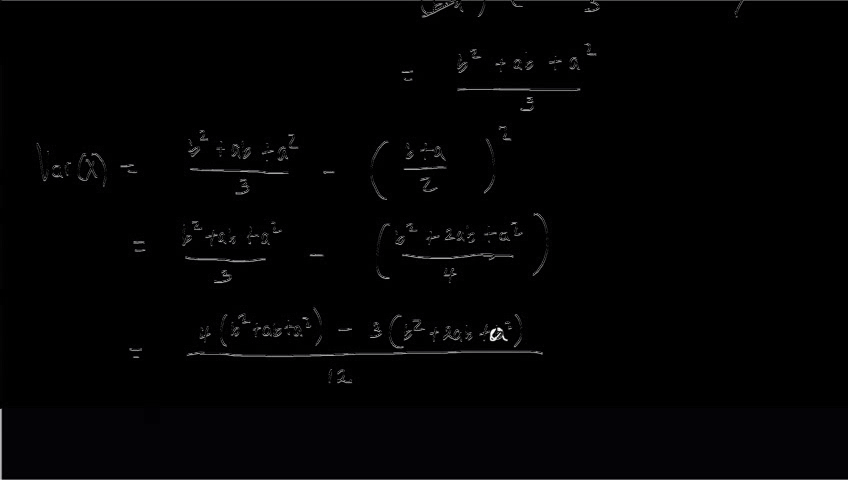 = (b² + ab + a²)/3
Var(X) = (b² + ab + a²)/3 - ((b+a)/2)²
= (b² + ab + a²)/3 - ((b² + 2ab + a²)/4)
= (4(b² + ab + a²) - 3(b² + 2ab + a²))/12